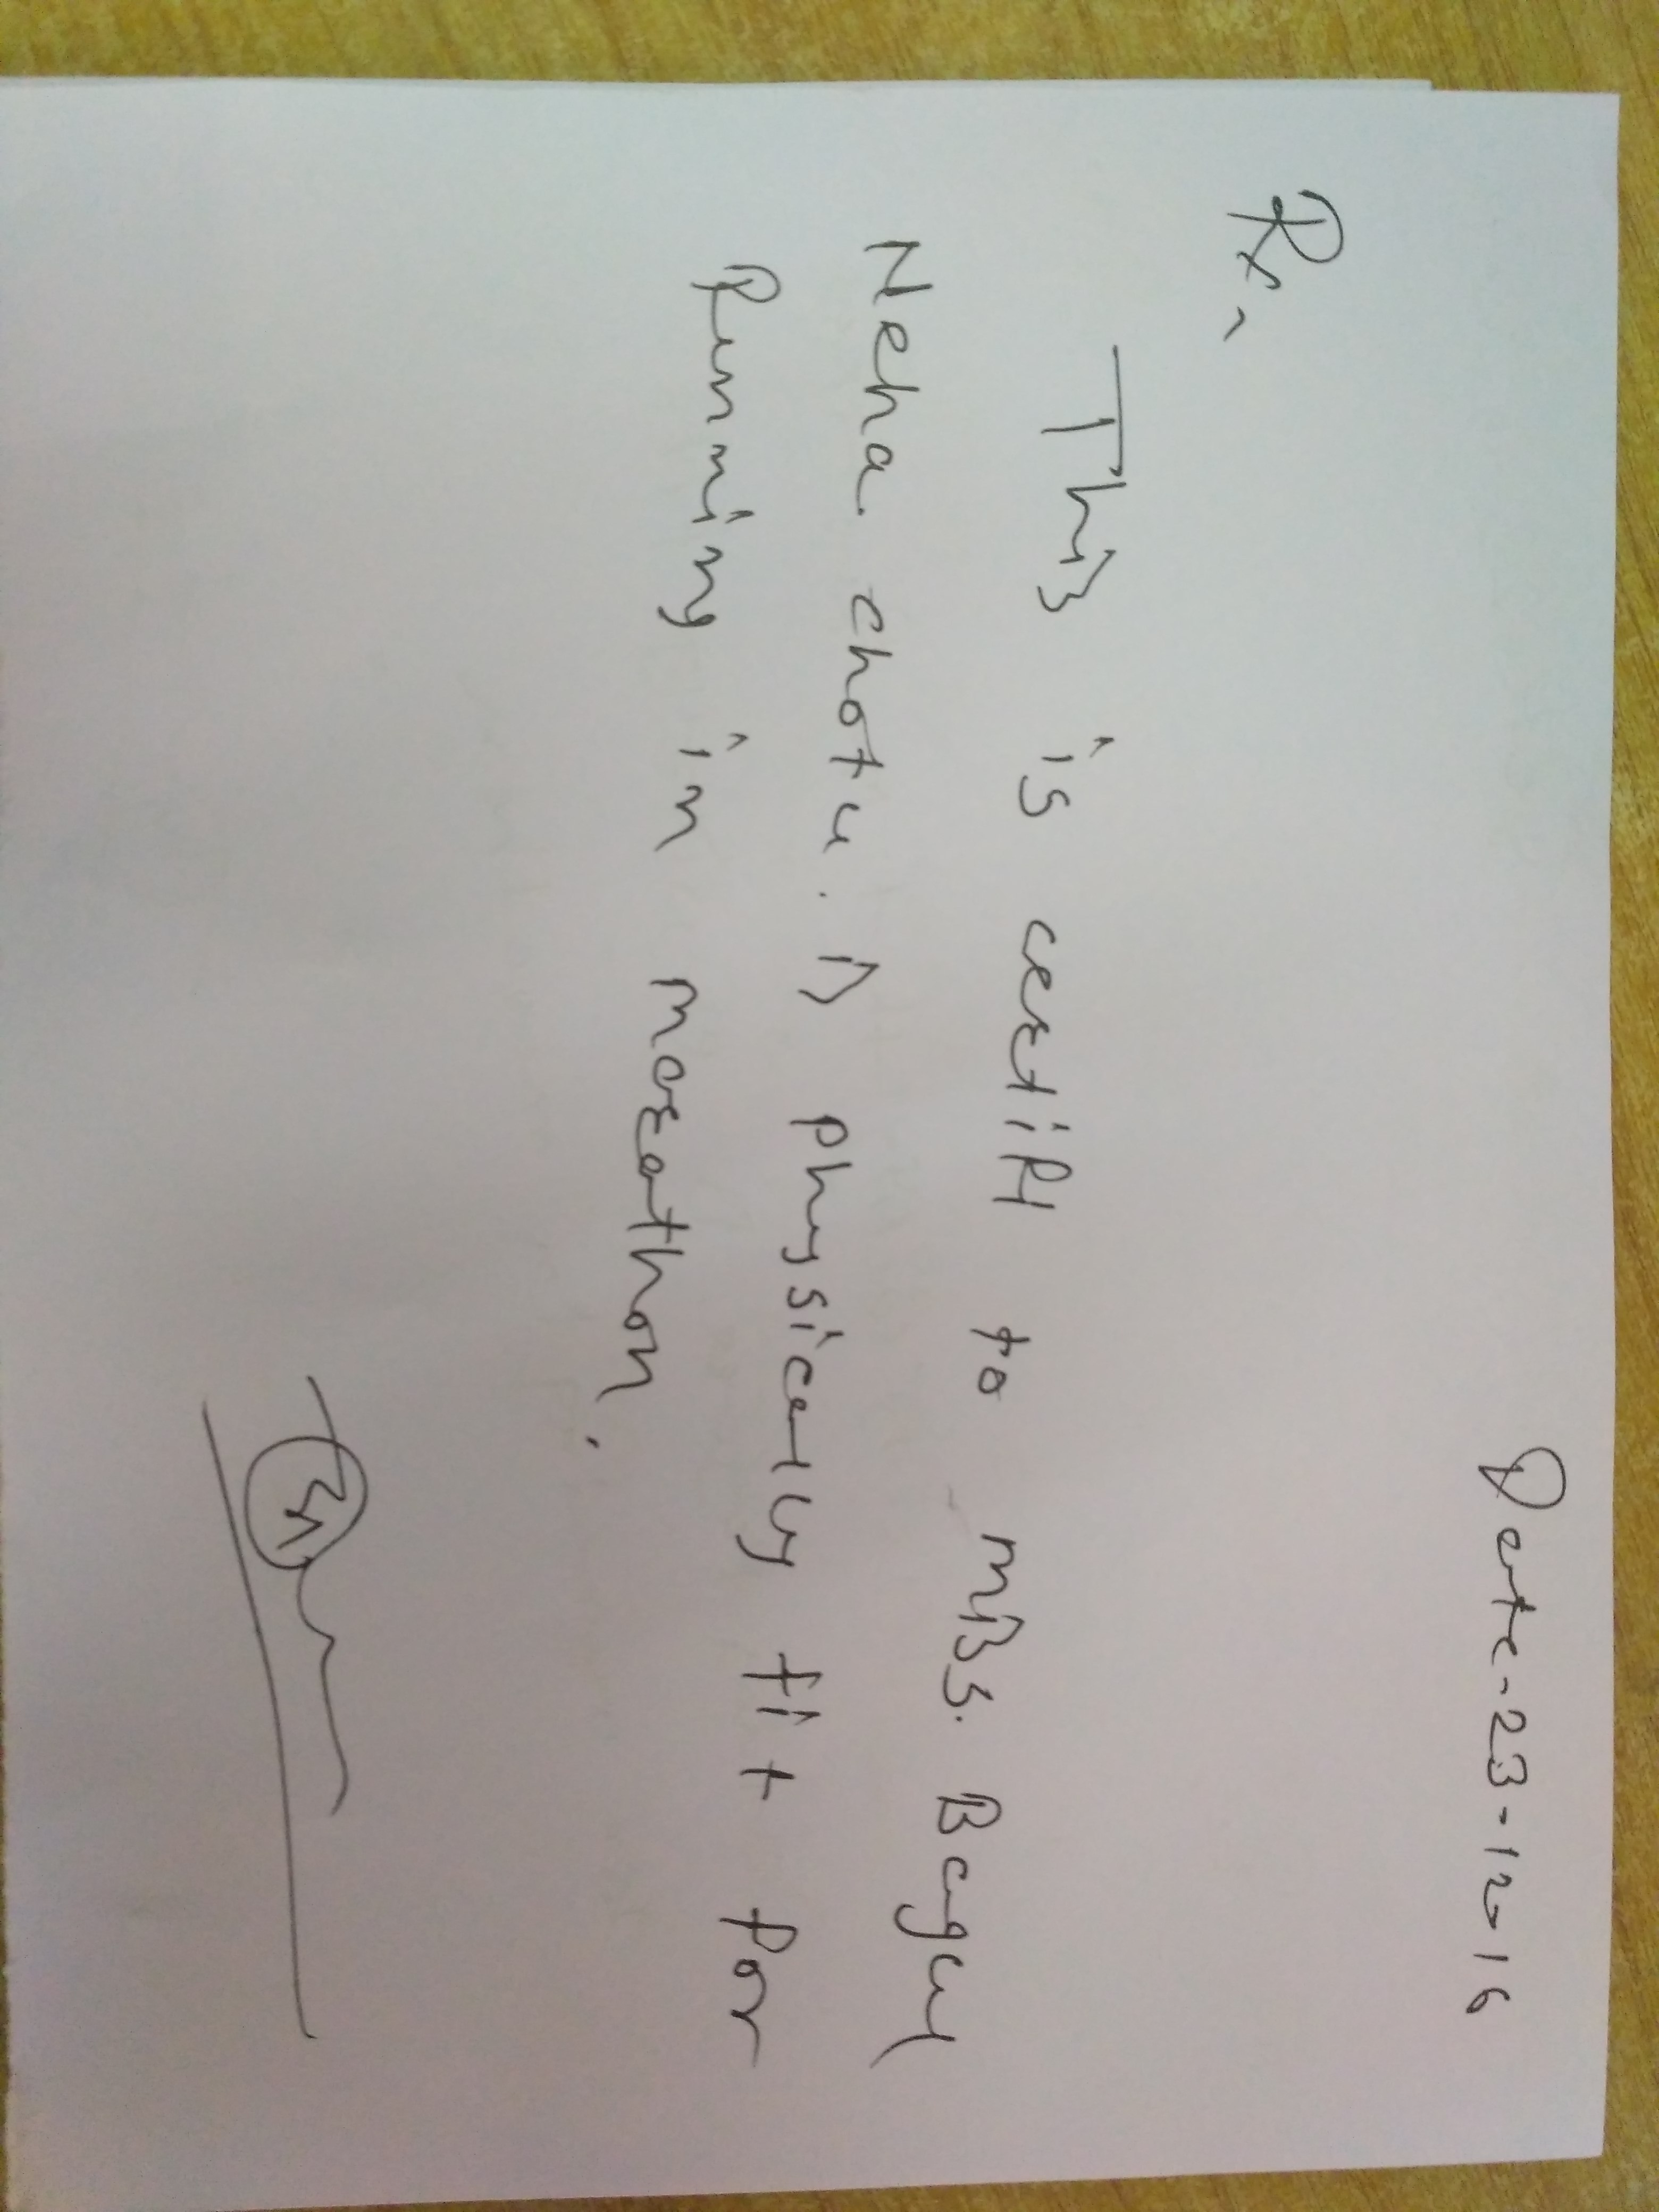 Date-23-12-16
Rx,
This is certify to miss. Bagul
Neha chotu. is physically fit for
Running in marathon.